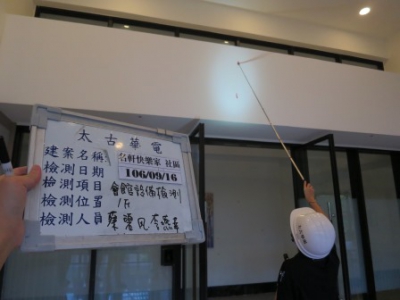 太古華電
建案名稱 名軒快樂家 社區
檢測日期 106/09/16
檢測項目 會館設備檢測
檢測位置 1F
檢測人員